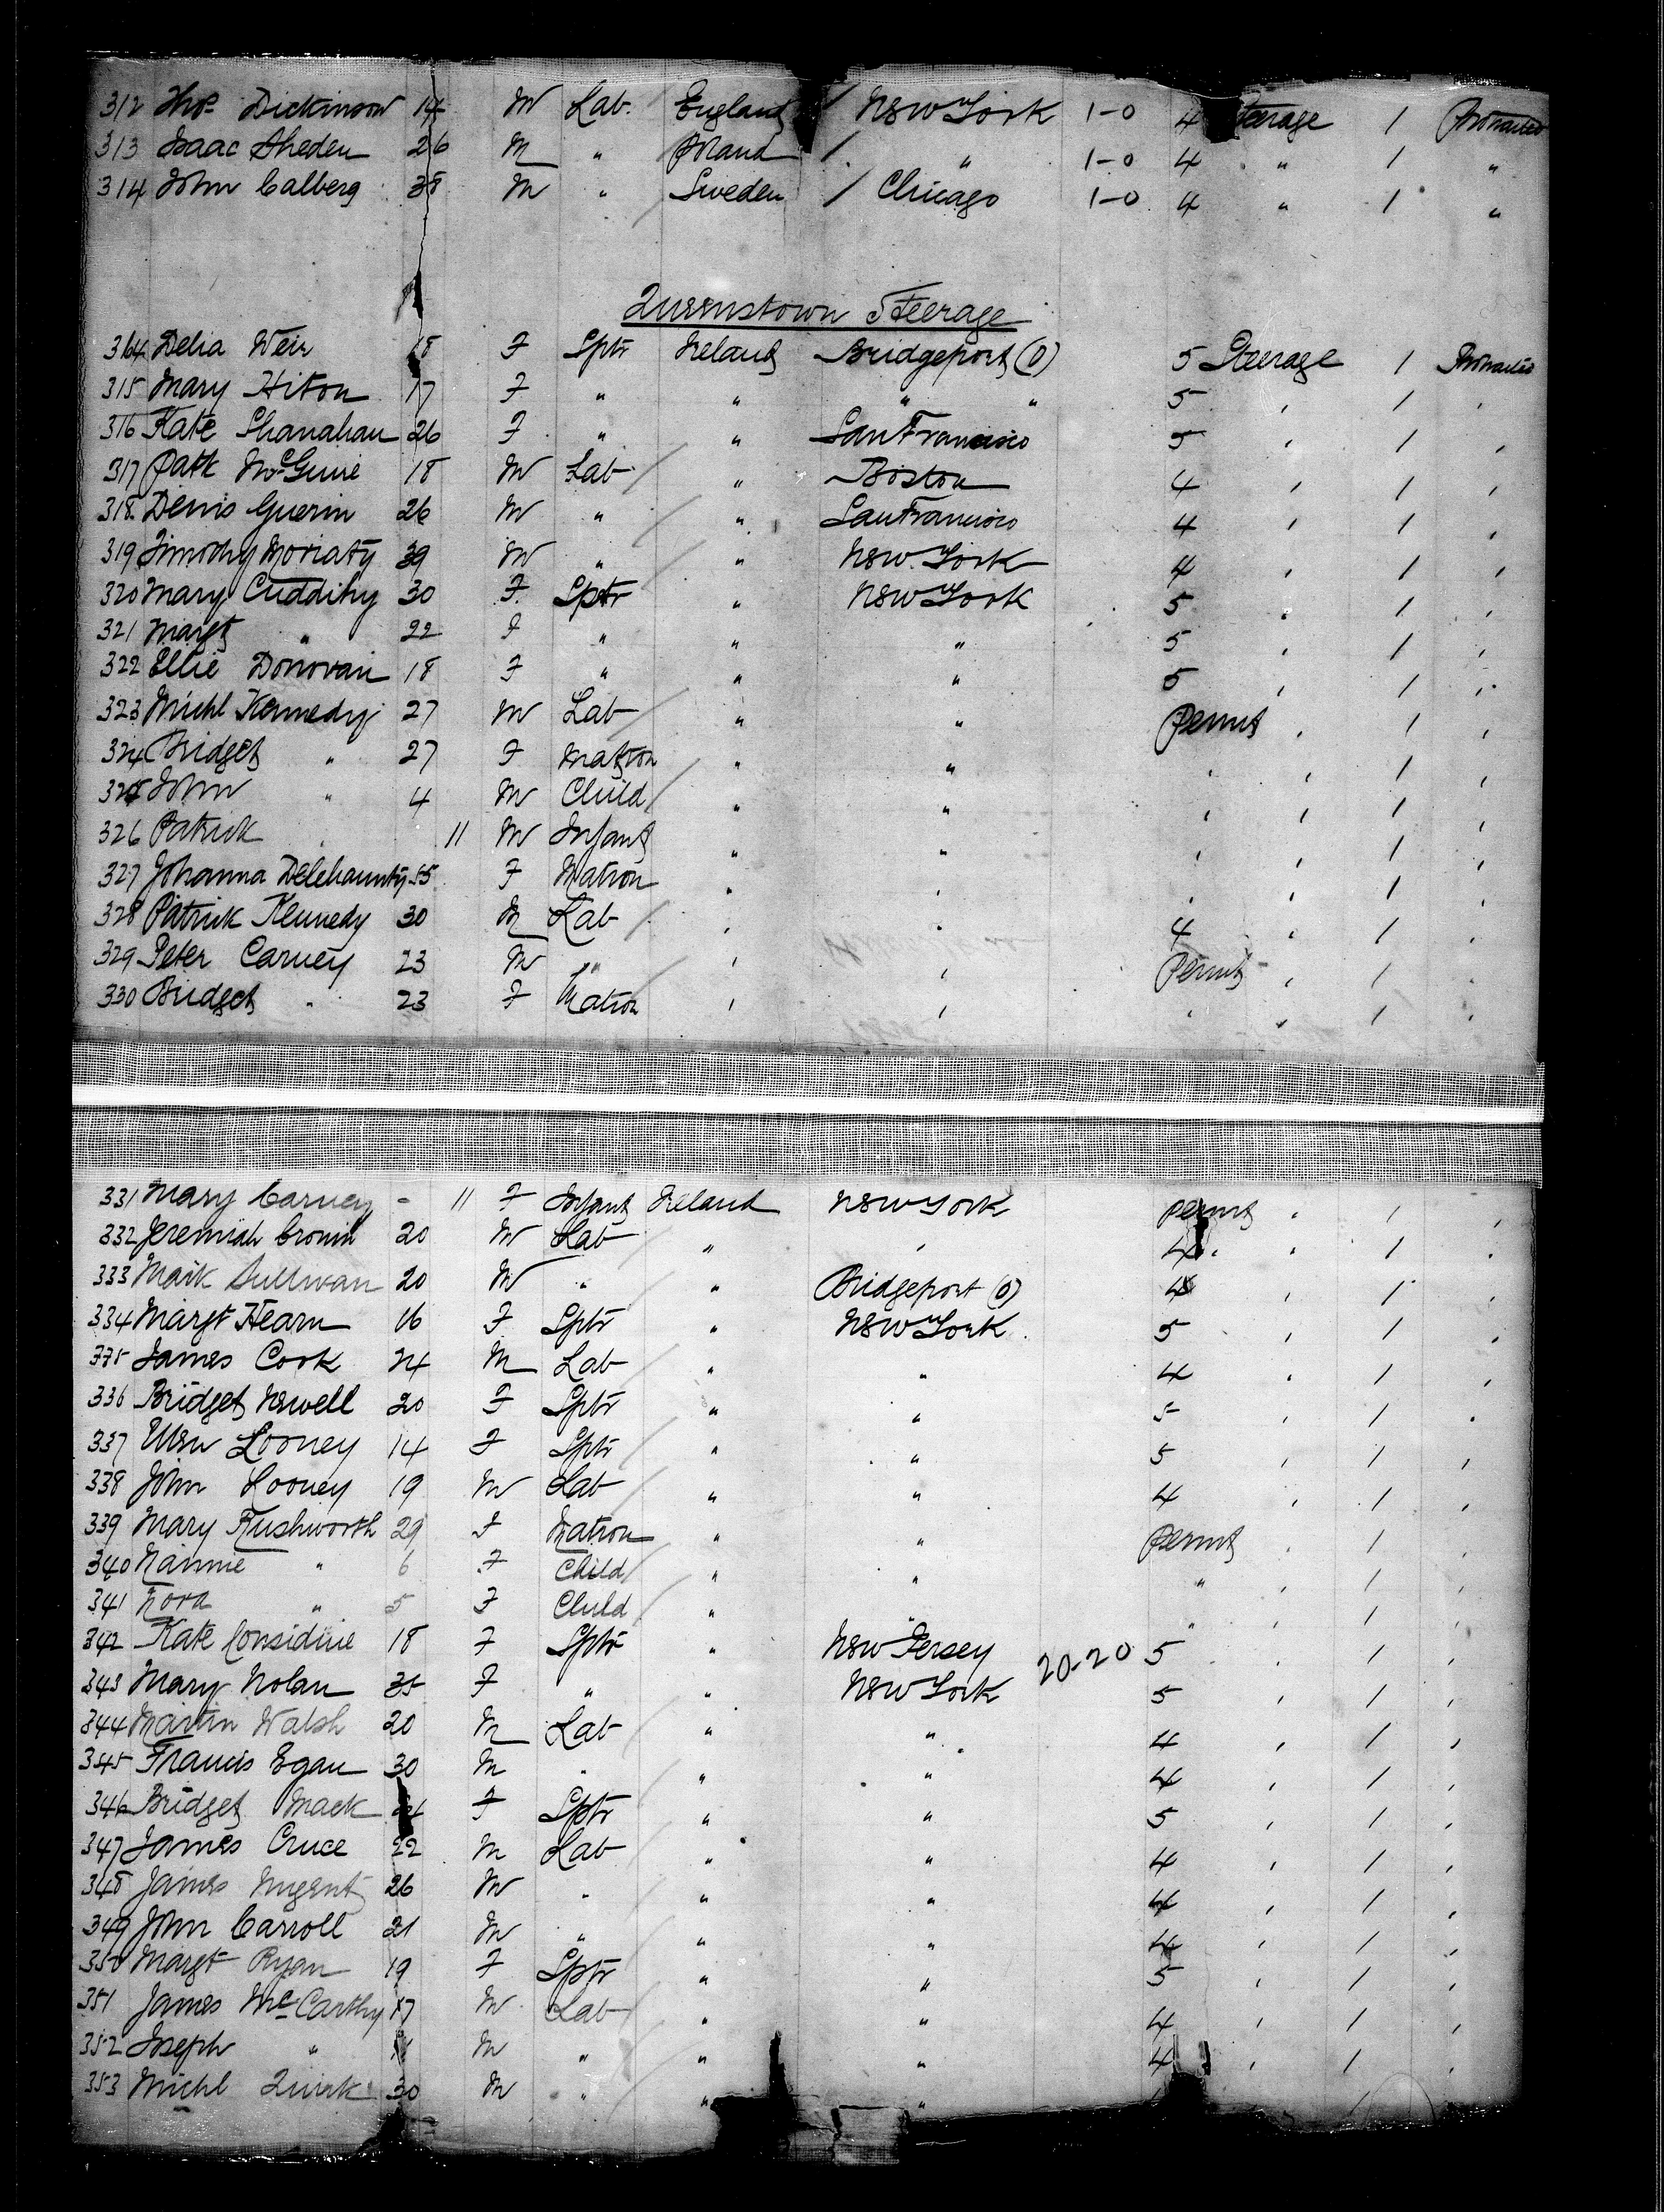 312 Thos. Dickinson 14 M Lab. England / New York 1-0 4 Steerage 1 Protracted
313 Isaac Sheden 26 M " Poland / " 1-0 4 " 1 "
314 John Calberg 38 M " Sweden / Chicago 1-0 4 " 1 "
Queenstown Steerage
314 Delia Weir 18 F Sptr Ireland Bridgeport (O) 5 Steerage 1 Protracted
315 Mary Hiton 17 F " " " " 5 " 1 "
316 Kate Shanahan 26 F " " San Francisco 5 " 1 "
317 Patk McGuire 18 M Lab / " Boston 4 " 1 "
318 Denis Guerin 26 M " / " San Francisco 4 " 1 "
319 Timothy Moriaty 39 M " / " New York 4 " 1 "
320 Mary Cuddihy 30 F Sptr " New York 5 " 1 "
321 Margt " 22 F " " " 5 " 1 "
322 Ellie Donovan 18 F " " " 5 " 1 "
323 Michl Kennedy 27 M Lab / " " Permit " 1 "
324 Bridget " 27 F Matron " " " " 1 "
325 John " 4 M Child / " " " " 1 "
326 Patrick " 11 M Infant " " " " 1 "
327 Johanna Delehaunty 55 F Matron " " " " 1 "
328 Patrick Kennedy 30 M Lab / " " 4 " 1 "
329 Peter Carney 23 M " / " " Permit " 1 "
330 Bridget " 23 F Matron " " " " 1 "
331 Mary Carney - 11 F Infant Ireland New York Permit " 1 "
332 Jeremiah Cronin 20 M Lab / " " 4 " 1 "
333 Maik Sullivan 20 M " / " Bridgeport (O) 4 " 1 "
334 Margt Hearn 16 F Sptr " New York 5 " 1 "
335 James Cook 24 M Lab / " " 4 " 1 "
336 Bridget Newell 20 F Sptr / " " 5 " 1 "
337 Ellen Looney 14 F Sptr / " " 5 " 1 "
338 John Looney 19 M Lab / " " 4 " 1 "
339 Mary Rushworth 29 F Matron " " Permit " 1 "
340 Nannie " 6 F Child / " " " " 1 "
341 Nora " 5 F Child / " " " " 1 "
342 Kate Considine 18 F Sptr " New Jersey 20-20 5 " 1 "
343 Mary Nolan 35 F " " New York 5 " 1 "
344 Martin Walsh 20 M Lab / " " 4 " 1 "
345 Francis Egan 30 M " / " " 4 " 1 "
346 Bridget Mack F Sptr / " " 5 " 1 "
347 James Cruce 22 M Lab / " " 4 " 1 "
348 James Nugent 26 M " / " " 4 " 1 "
349 John Carroll 21 M " / " " 4 " 1 "
350 Margt Ryan 19 F Sptr / " " 5 " 1 "
351 James McCarthy 17 M Lab / " " 4 " 1 "
352 Joseph " M " / " " 4 " 1 "
353 Michl Quirk 30 M " / " "